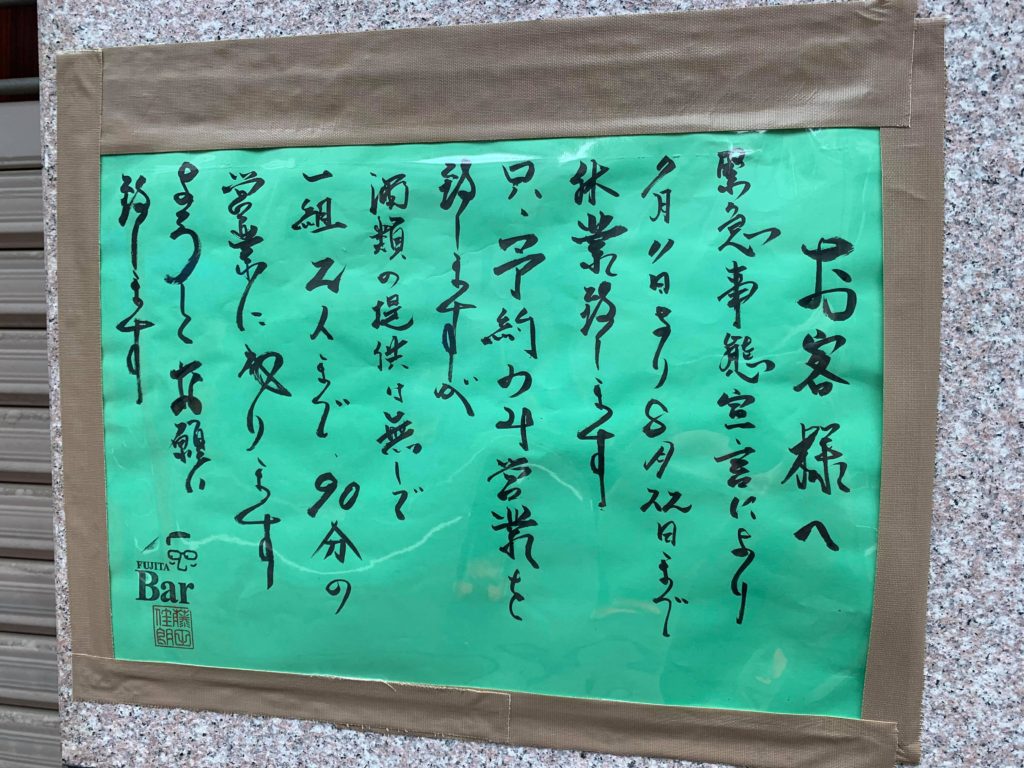 お客様へ
緊急事態宣言により
7月11日より8月22日まで
休業致します
只、予約のみ営業を
致しますが
酒類の提供は無しで
一組2人まで、90分の
営業に成ります
よろしくお願い
致します
FUJITA
Bar